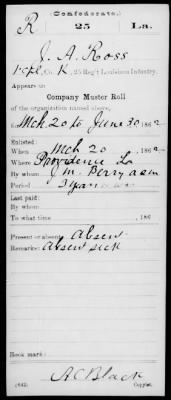 (Confederate.)
R 25 La.
J. A. Ross
Co. K, 25 Reg't Louisiana Infantry.
Appears on
Company Muster Roll
of the organization named above,
for Mch 20 to June 30, 1862.
Enlisted:
When Mch 20, 1862
Where Providence La
By whom J. M. Berry
Period 3 years
Last paid:
By whom
To what time , 186 .
Present or absent Absent
Remarks: Absent sick
Book mark:
(642) A C Black
Copyist.